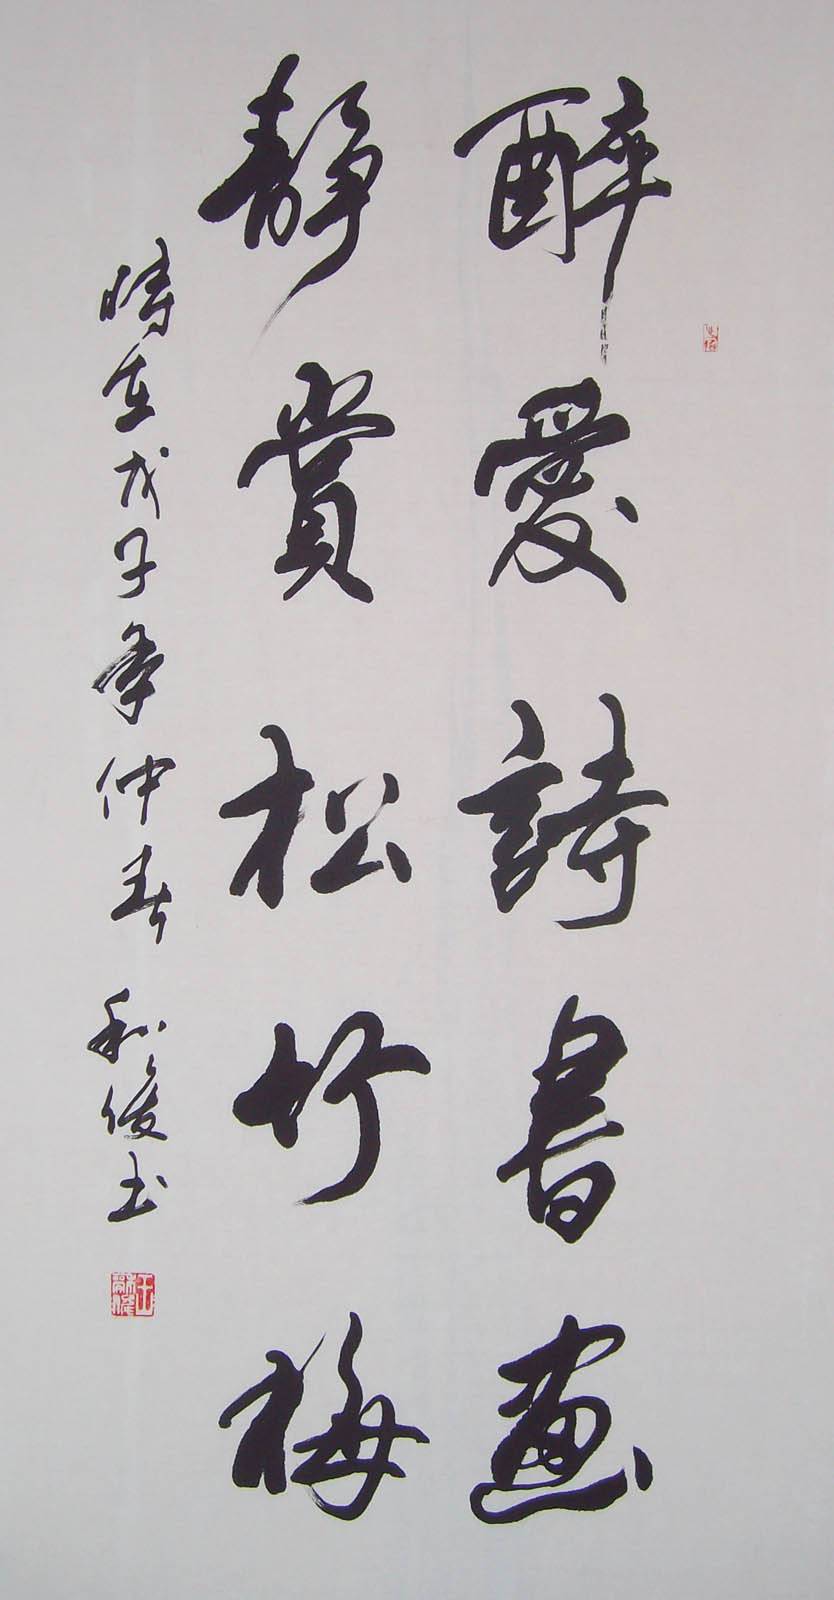 醉愛詩書畫
靜賞松竹梅
時在戊子年仲春 和俊书